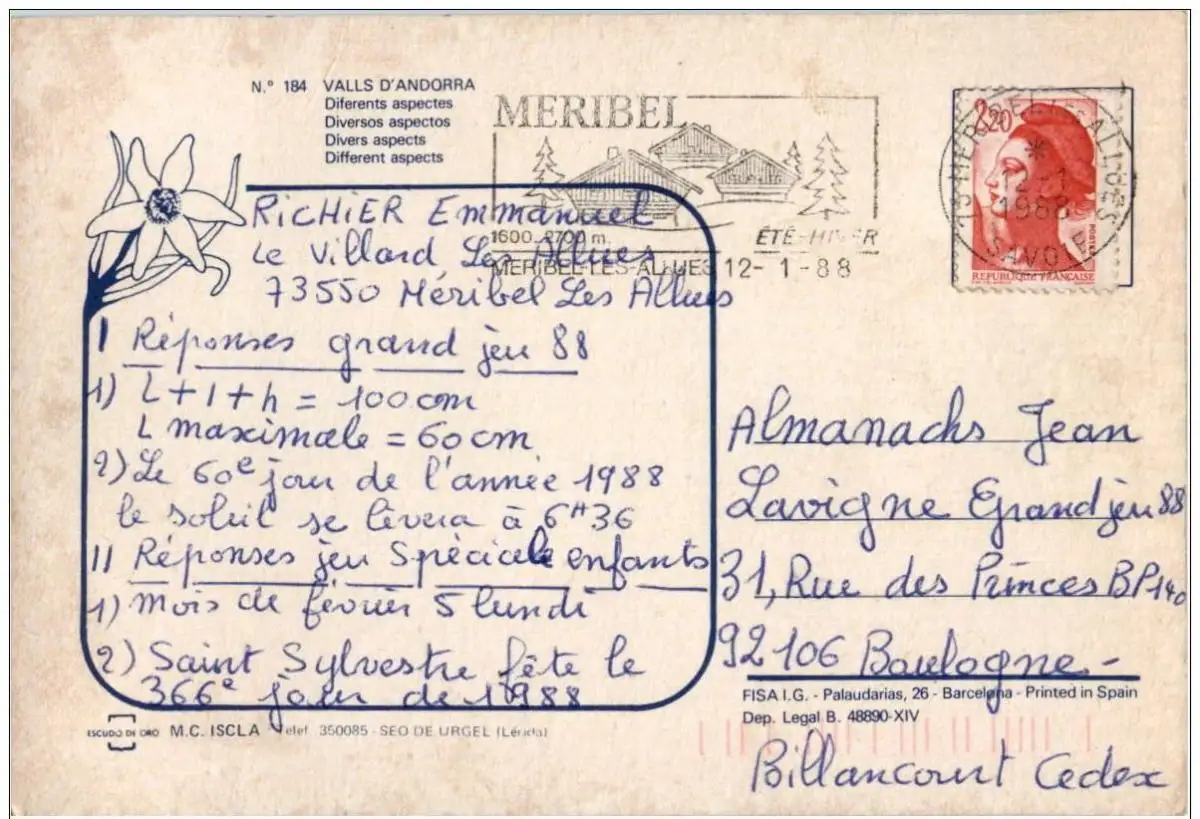 N.º 184 VALLS D'ANDORRA
Diferents aspectes
Diversos aspectos
Divers aspects
Different aspects
MERIBEL
1600_2700 m.
ÉTÉ-HIVER
MERIBEL-LES-ALLUES 12- 1 -88
73 MERIBEL LES ALLUES
12 - 1
1988
SAVOIE
2,20
POSTES
REPUBLIQUE FRANÇAISE
RICHIER Emmanuel
Le Villard Les Allues
73550 Méribel Les Allues
I Réponses grand jeu 88
1) L + l + h = 100 cm
L maximale = 60 cm
2) Le 60e jour de l'année 1988
le soleil se lèvera à 6H36
II Réponses jeu Spéciale enfants
1) mois de février 5 lundi
2) Saint Sylvestre fête le
366e jour de 1988
Almanachs Jean
Lavigne Grand jeu 88
31, Rue des Princes BP 140
92106 Boulogne -
Billancourt Cedex
FISA I.G. - Palaudarias, 26 - Barcelona - Printed in Spain
Dep. Legal B. 48890-XIV
ESCUDO DE ORO M.C. ISCLA Telef. 350085 - SEO DE URGEL (Lérida)